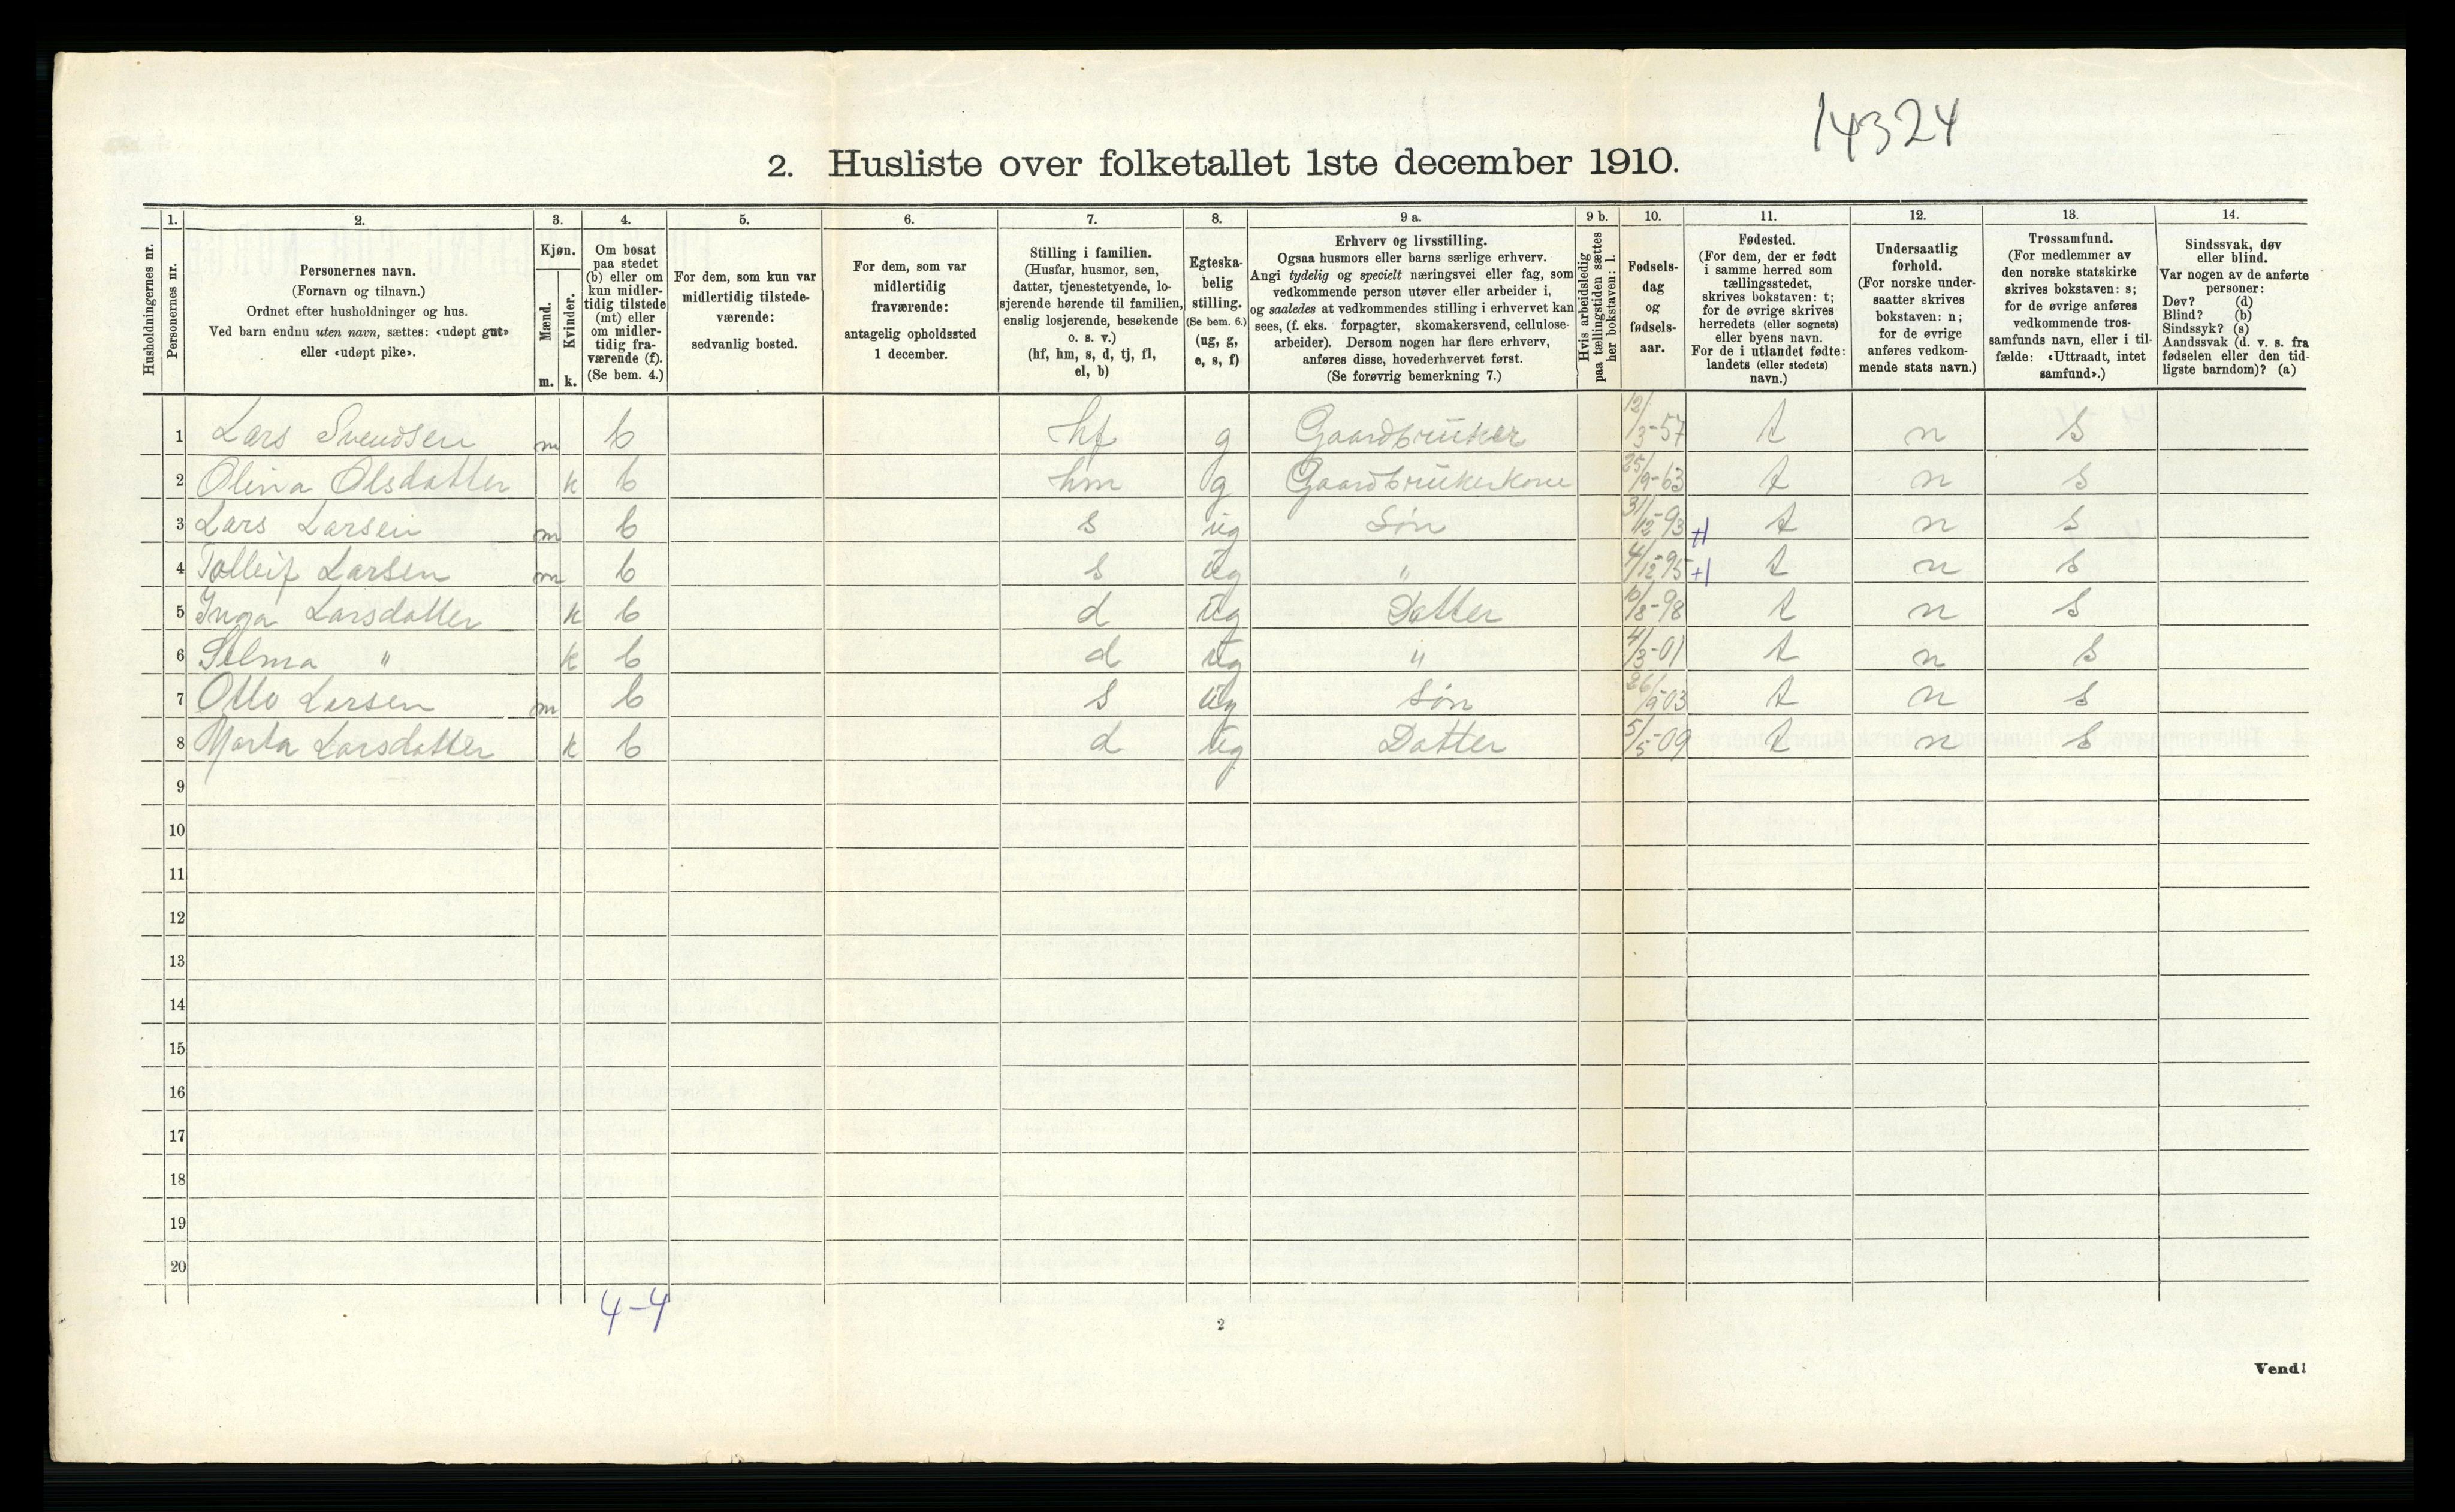 14324
2. Husliste over folketallet 1ste december 1910.
1. 2. 3. 4. 5. 6. 7. 8. 9 a. 9 b. 10. 11. 12. 13. 14.
Husholdningernes nr.
Personernes nr.
Personernes navn.
(Fornavn og tilnavn.)
Ordnet efter husholdninger og hus.
Ved barn endnu uten navn, sættes: «udøpt gut»
eller «udøpt pike».
Kjøn.
Mænd.
Kvinder.
m. k.
Om bosat
paa stedet
(b) eller om
kun midler-
tidig tilstede
(mt) eller
om midler-
tidig fra-
værende (f).
(Se bem. 4.)
For dem, som kun var
midlertidig tilstede-
værende:
sedvanlig bosted.
For dem, som var
midlertidig
fraværende:
antagelig opholdssted
1 december.
Stilling i familien.
(Husfar, husmor, søn,
datter, tjenestetyende, lo-
sjerende hørende til familien,
enslig losjerende, besøkende
o. s. v.)
(hf, hm, s, d, tj, fl,
el, b)
Egteska-
belig
stilling.
(Se bem. 6.)
(ug, g,
e, s, f)
Erhverv og livsstilling.
Ogsaa husmors eller barns særlige erhverv.
Angi tydelig og specielt næringsvei eller fag, som
vedkommende person utøver eller arbeider i,
og saaledes at vedkommendes stilling i erhvervet kan
sees, (f. eks. forpagter, skomakersvend, cellulose-
arbeider). Dersom nogen har flere erhverv,
anføres disse, hovederhvervet først.
(Se forøvrig bemerkning 7.)
Hvis arbeidsledig
paa tællingstiden sættes
her bokstaven: l.
Fødsels-
dag
og
fødsels-
aar.
Fødested.
(For dem, der er født
i samme herred som
tællingsstedet,
skrives bokstaven: t;
for de øvrige skrives
herredets (eller sognets)
eller byens navn.
For de i utlandet fødte:
landets (eller stedets)
navn.)
Undersaatlig
forhold.
(For norske under-
saatter skrives
bokstaven: n;
for de øvrige
anføres vedkom-
mende stats navn.)
Trossamfund.
(For medlemmer av
den norske statskirke
skrives bokstaven: s;
for de øvrige anføres
vedkommende tros-
samfunds navn, eller i til-
fælde: «Uttraadt, intet
samfund».)
Sindssvak, døv
eller blind.
Var nogen av de anførte
personer:
Døv? (d)
Blind? (b)
Sindssyk? (s)
Aandssvak (d. v. s. fra
fødselen eller den tid-
ligste barndom)? (a)
1 Lars Svendsen m b hf g Gaardbruker 12/3-57 t n s
2 Olina Olsdatter k b hm g Gaardbrukerkone 25/9-63 t n s
3 Lars Larsen m b s ug Søn 31/12-93 t n s
4 Tolleif Larsen m b s ug " 4/12-95 t n s
5 Inga Larsdatter k b d ug Datter 10/8-98 t n s
6 Selma " k b d ug " 4/3-01 t n s
7 Otto Larsen m b s ug Søn 26/9-03 t n s
8 Marta Larsdatter k b d ug Datter 5/5-09 t n s
9
10
11
12
13
14
15
16
17
18
19
20
4-4
2
Vend!